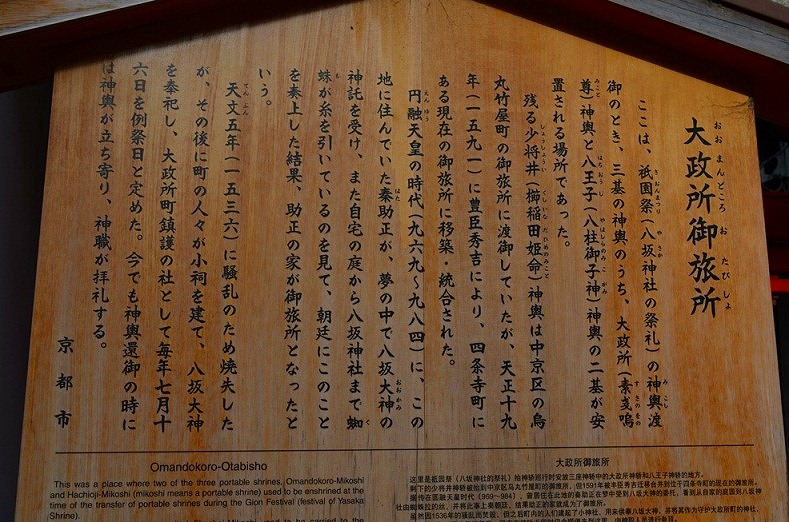 大政所御旅所
おおまんどころおたびしょ
ここは、祇園祭(八坂神社の祭礼)の神輿渡
御のとき、三基の神輿のうち、大政所(素戔嗚
尊)神輿と八王子(八柱御子神)神輿の二基が安
置される場所であった。
残る少将井(櫛稲田姫命)神輿は中京区の烏
丸竹屋町の御旅所に渡御していたが、天正十九
年(一五九一)に豊臣秀吉により、四条寺町に
ある現在の御旅所に移築・統合された。
円融天皇の時代(九六九〜九八四)に、この
地に住んでいた秦助正が、夢の中で八坂大神の
神託を受け、また自宅の庭から八坂神社まで蜘
蛛が糸を引いているのを見て、朝廷にこのこと
を奏上した結果、助正の家が御旅所となったと
いう。
天文五年(一五三六)に騒乱のため焼失した
が、その後に町の人々が小祠を建て、八坂大神
を奉祀し、大政所町鎮護の社として毎年七月十
六日を例祭日と定めた。今でも神輿還御の時に
は神輿が立ち寄り、神職が拝礼する。
京都市
Omandokoro-Otabisho
This was a place where two of the three portable shrines, Omandokoro-Mikoshi
and Hachioji-Mikoshi (mikoshi means a portable shrine) used to be enshrined at the
time of the transfer of portable shrines during the Gion Festival (festival of Yasaka
Shrine).
大政所御旅所
这里是祇园祭(八坂神社的祭礼)抬神轿巡行时安放三座神轿中的大政所神轿和八王子神轿的地方。